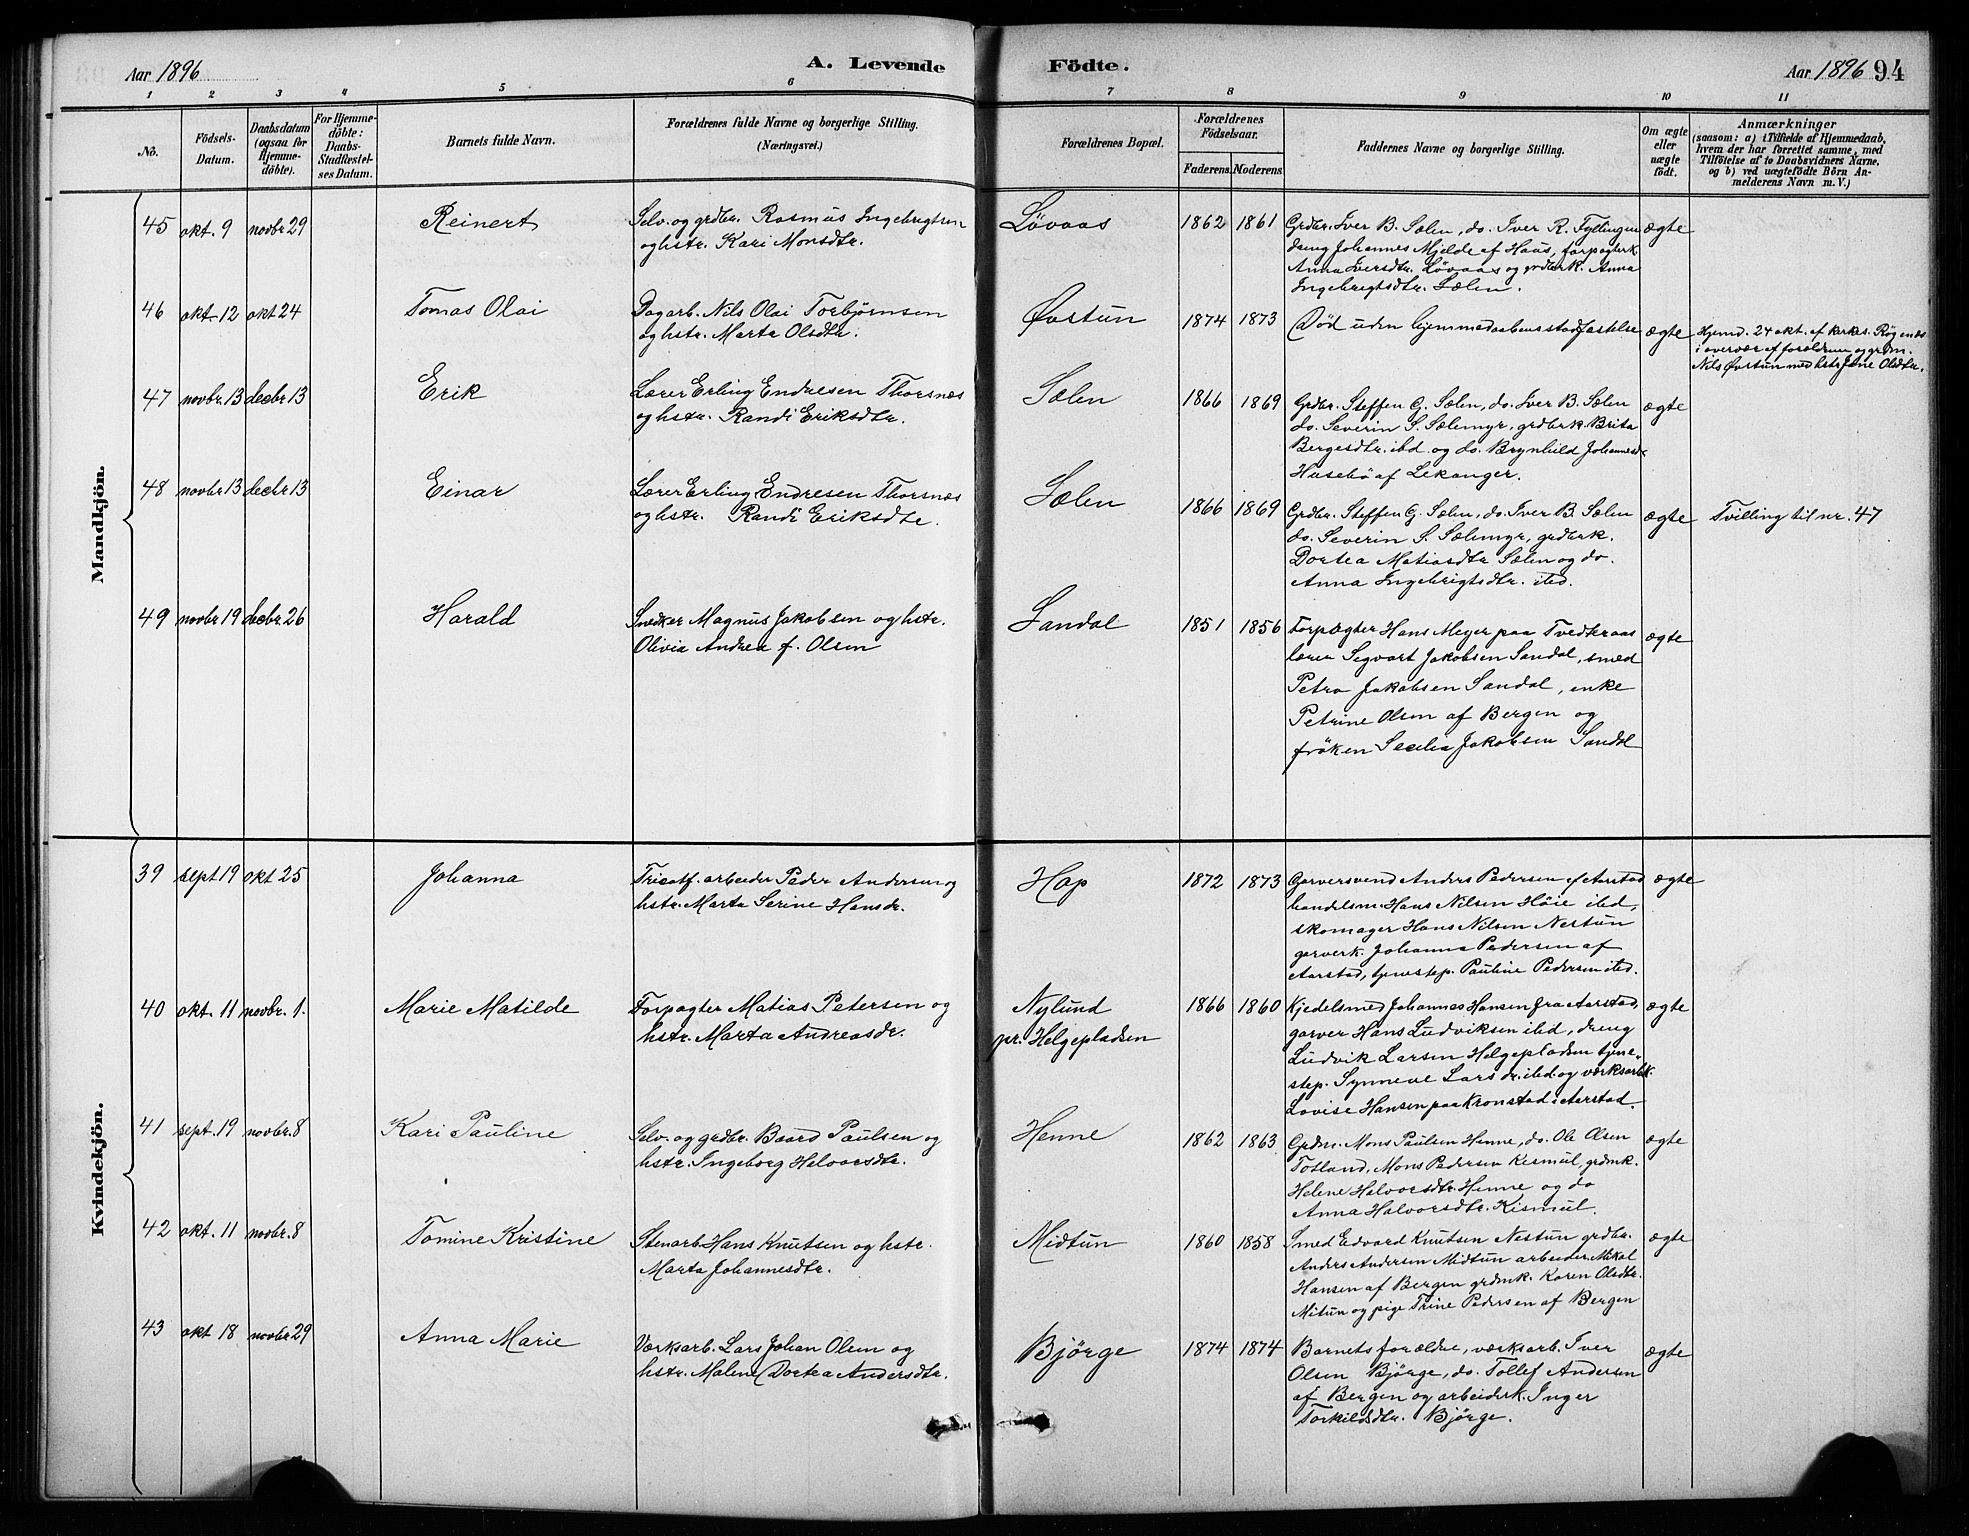 Aar 1896
A. Levende
Födte.
Aar 1896 94
1 2 3 4 5 6 7 8 9 10 11
No.
Födsels-
Datum.
Daabsdatum
(ogsaa for
Hjemme-
döbte).
For Hjemme-
döbte:
Daabs-
Stadfæstel-
ses Datum.
Barnets fulde Navn.
Forældrenes fulde Navne og borgerlige Stilling.
(Næringsvei.)
Forældrenes Bopæl.
Forældrenes
Födselsaar.
Faderens. Moderens.
Faddernes Navne og borgerlige Stilling.
Om ægte
eller
uægte
födt.
Anmærkninger
(saasom: a) i Tilfælde af Hjemmedaab,
hvem der har forrettet samme, med
Tilföielse af to Daabsvidners Navne,
og b) ved uægtefödte Börn An-
melderens Navn m. V.)
Mandkjön.
45 okt. 9 novbr 29 Reinert
Selv. og grdbr. Rasmus Ingebrigtsen
og hstr. Kari Monsdtr.
Løvaas 1862 1861
Grdbr. Iver B. Sælen, do. Iver R. Fyllingen
dreng Johannes Mjelde af Haus, forpagterk
Anna Iversdtr. Løvaas og grdbrk. Anna
Ingebrigtsdtr. Sælen.
ægte
46 okt. 12 okt 24 Tomas Olai
Dagarb. Nils Olai Torbjørnsen
og hstr. Marta Olsdtr.
Øvstun 1874 1873
Død uden hjemmedaabens stadfæstelse
ægte
Hjemd. 24 okt. af kirkes. Røgenæs
i overvær af forældrene og grdm.
Nils Øvstun med hstr Jane Olsdtr.
47 novbr. 13 decbr 13 Erik
Lærer Erling Endresen Thorsnæs
og hstr. Randi Eriksdtr.
Sælen 1866 1869
Grdbr. Steffen G. Sælen, do. Iver B. Sælen
do. Severin S. Sælemyr, grdbrk. Brita
Bergesdtr. ibd. og do. Brynhild Johannesd.
Husebö af Lekanger.
ægte
48 novbr 13 decbr 13 Einar
Lærer Erling Endresen Thorsnæs
og hstr. Randi Eriksdtr.
Sælen 1866 1869
Grdbr. Steffen G. Sælen, do. Iver B. Sælen
do. Severin S. Sælemyr, grdbrk.
Dortea Matiasdtr Sælen og do.
Anna Ingebrigtsdtr. ibd.
ægte Tvilling til nr. 47
49 novbr 19 decbr 26 Harald
Snedker Magnus Jakobsen og hstr.
Olivia Andrea f. Olsen
Sandal 1851 1856
Forpagter Hans Meyer paa Tvedteraas
lærer Segvart Jakobsen Sandal, smed
Petra Jakobsen Sandal, enke
Petrine Olsen af Bergen og
frøken Secilia Jakobsen Sandal
ægte
Kvindekjön.
39 sept 19 okt 25 Johanna
Tricotf. arbeider Peder Andersen og
hstr. Marta Serine Hansdr.
Hop 1872 1873
Garversvend Anders Pedersen af Aarstad
handelsm. Hans Nilsen Höie ibd,
skomager Hans Nilsen Nestun
garverk. Johanna Pedersen af
Aarstad, tjenestep. Pauline Pedersen ibd.
ægte
40 okt. 11 novbr. 1. Marie Matilde
Forpagter Matias Petersen og
hstr. Marta Andreasdr.
Nylund
pr. Helgepladsen
1866 1860
Kjedelsmed Johannes Hansen fra Aarstad,
garver Hans Ludviksen ibd, dreng
Ludvik Larsen Helgepladsen tjene-
step. Synneve Larsdr. ibd. og værksarbk.
Lovise Hansen paa Kronstad i Aarstad.
ægte
41 sept. 19 novbr. 8 Kari Pauline
Selv. og grdbr. Baard Paulsen og
hstr. Ingeborg Helvorsdtr.
Henne 1862 1863
Grdm. Mons Paulsen Henne, do. Ole Olsen
Totland, Mons Pedersen Kismul, grdmk.
Helene Halvorsdtr. Henne og do
Anna Halvorsdtr. Kismul.
ægte
42 okt. 11 novbr. 8 Tomine Kristine
Stenarb. Hans Knutsen og hstr.
Marta Johannesdtr.
Midtun 1860 1858
Smed Edvard Knutsen Nestun grdbr.
Anders Andersen Midtun arbeider Mikal
Hansen af Bergen grdmk. Karen Olsdtr.
Mitun og pige Trine Pedersen af Bergen
ægte
43 okt 18 novbr 29 Anna Marie
Værksarb. Lars Johan Olsen og
hstr. Malene Dortea Andersdtr.
Bjørge 1874 1874
Barnets forældre, værksarb. Iver
Olsen Bjørge, do. Tollef Andersen
af Bergen og arbeiderk. Inger
Torkildsdtr. Bjørge.
ægte